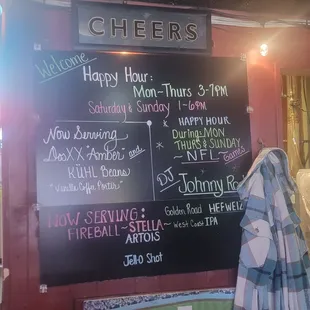 CHEERS
Welcome
Happy Hour:
Mon-Thurs 3-7PM
Saturday & Sunday 1-6PM
Now Serving
DosXX "Amber" and
KÜHL Beans
"Vanilla Coffee Porter"
& HAPPY HOUR
During: MON
THURS & SUNDAY
~ NFL ~ Games
DJ
Johnny
NOW SERVING:
FIREBALL ~ STELLA
ARTOIS
Jell-O Shot
Golden Road HEFEWEI
~ West Coast IPA